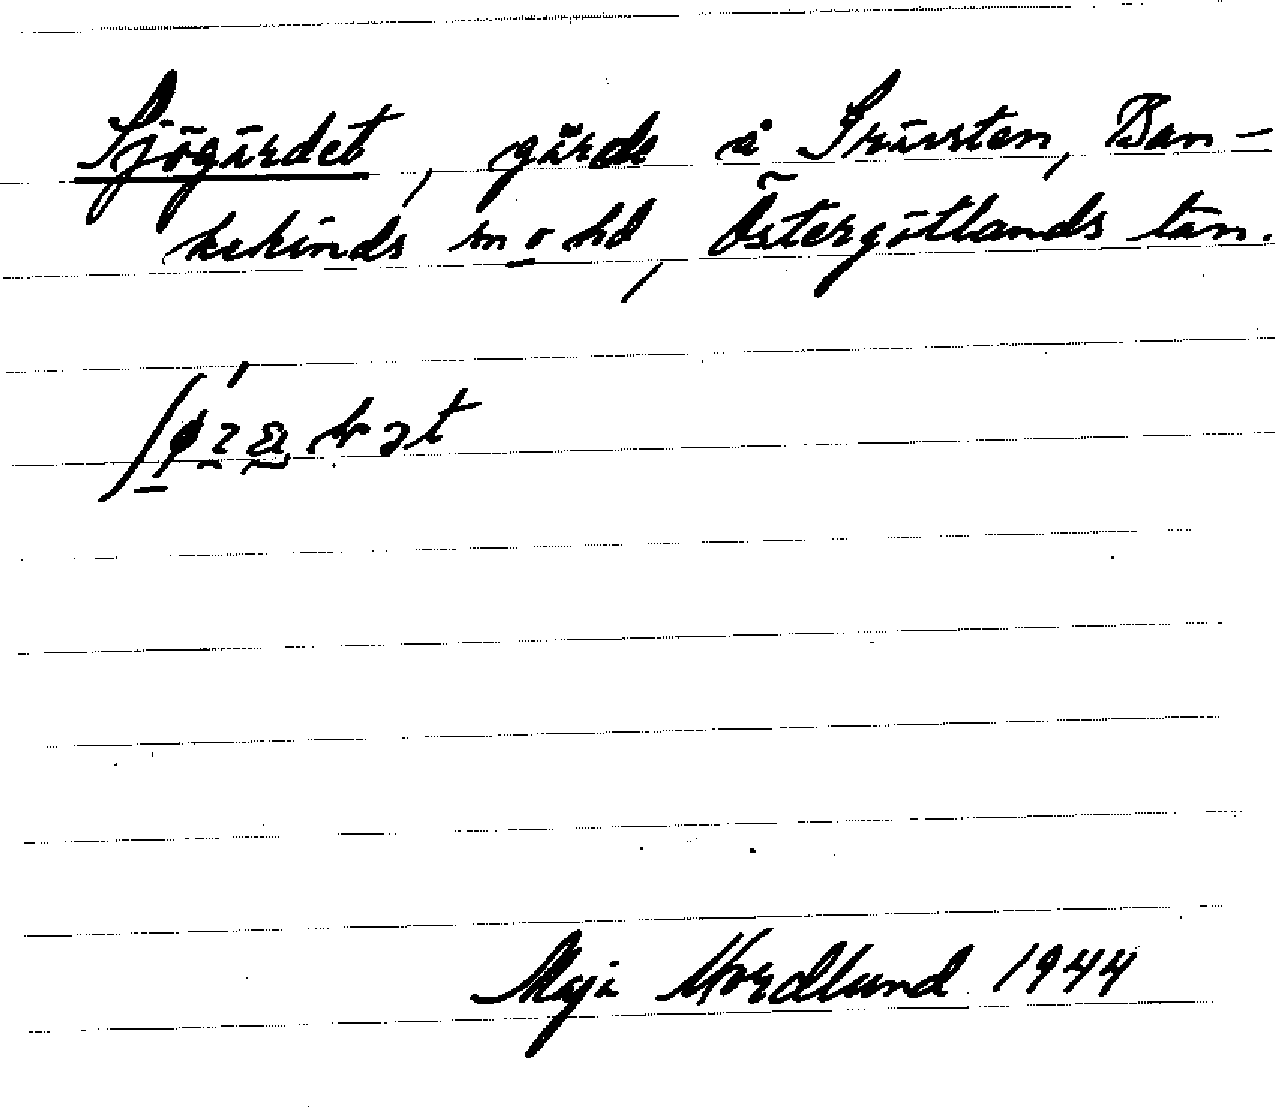 Sjögärdet, gärde å Skärsten, Ban-
kekinds sn o hd, Östergötlands län.
Maja Nordlund 1944